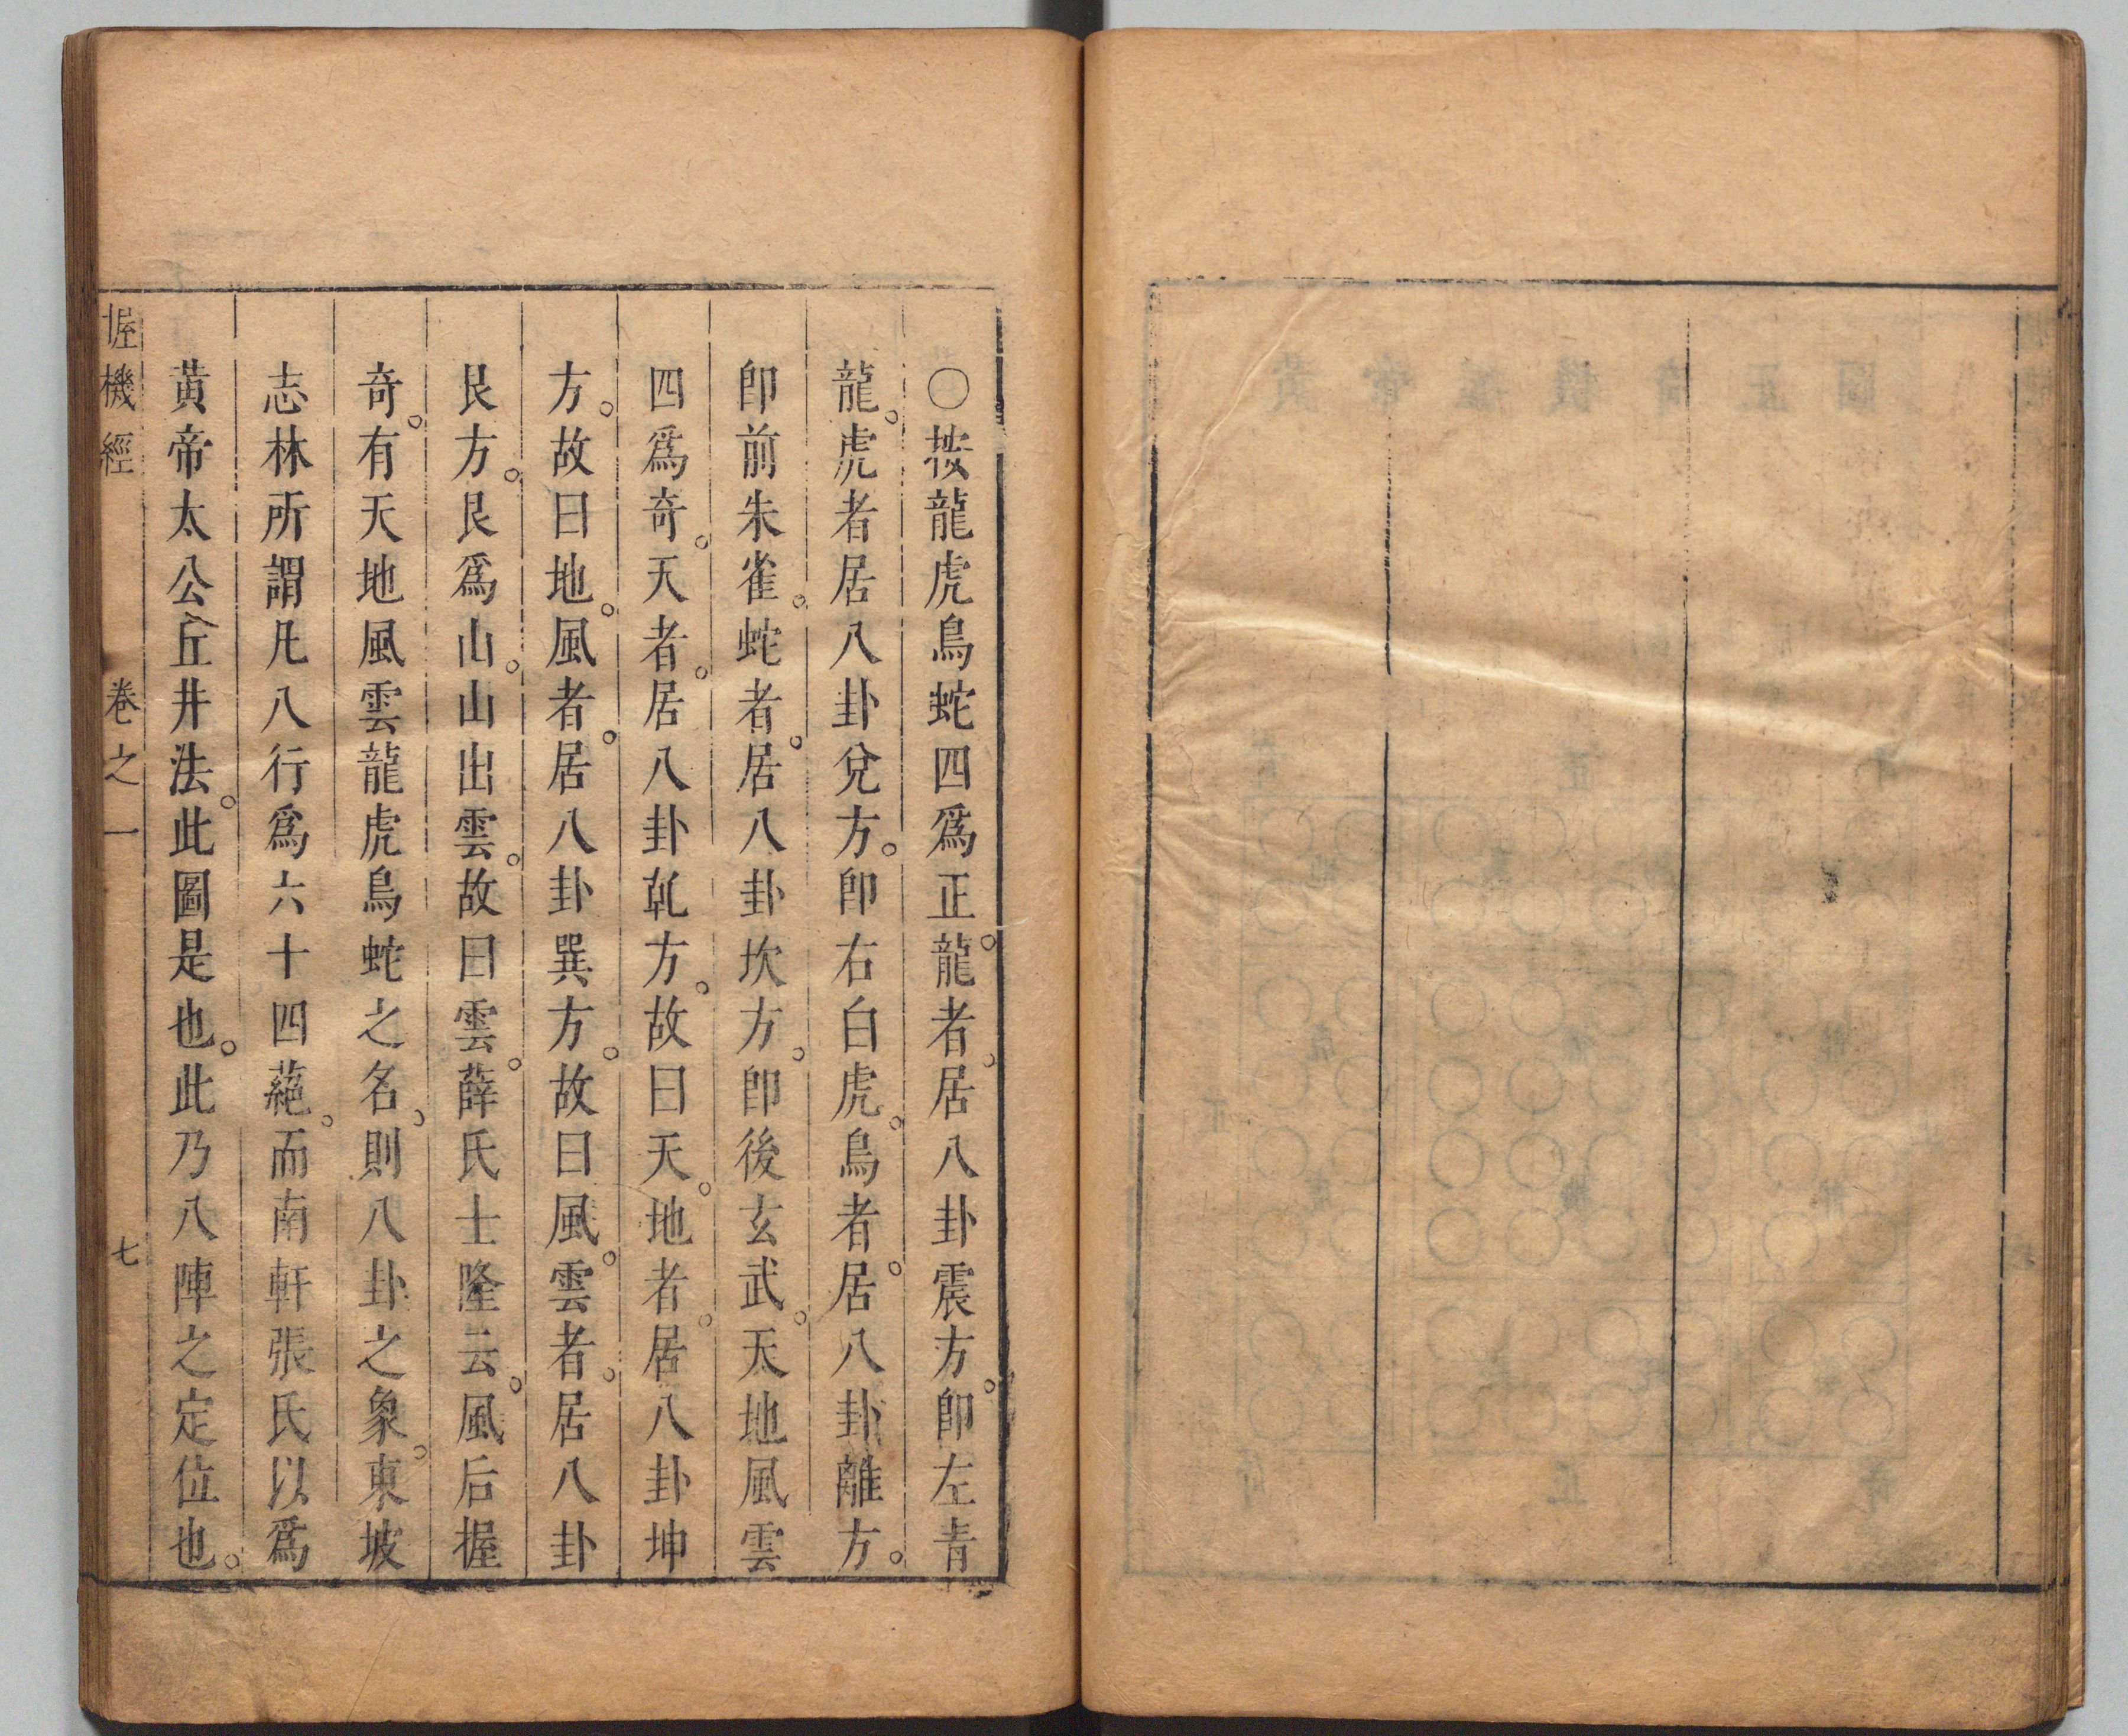 ○按龍虎鳥蛇四爲正。龍者。居八卦震方。卽左青
龍。虎者居八卦兌方。卽右白虎。鳥者。居八卦離方。
卽前朱雀。蛇者。居八卦坎方。卽後玄武。天地風雲
四爲奇。天者。居八卦乹方。故曰天。地者。居八卦坤
方。故曰地。風者。居八卦巽方。故曰風。雲者。居八卦
艮方。艮爲山。山出雲。故曰雲。薛氏士隆云。風后握
奇。有天地風雲龍虎鳥蛇之名。則八卦之象。東坡
志林所謂凡八行爲六十四蕝。而南軒張氏以爲
黃帝太公丘井法。此圖是也。此乃八陣之定位也。
握機經 卷之一 七